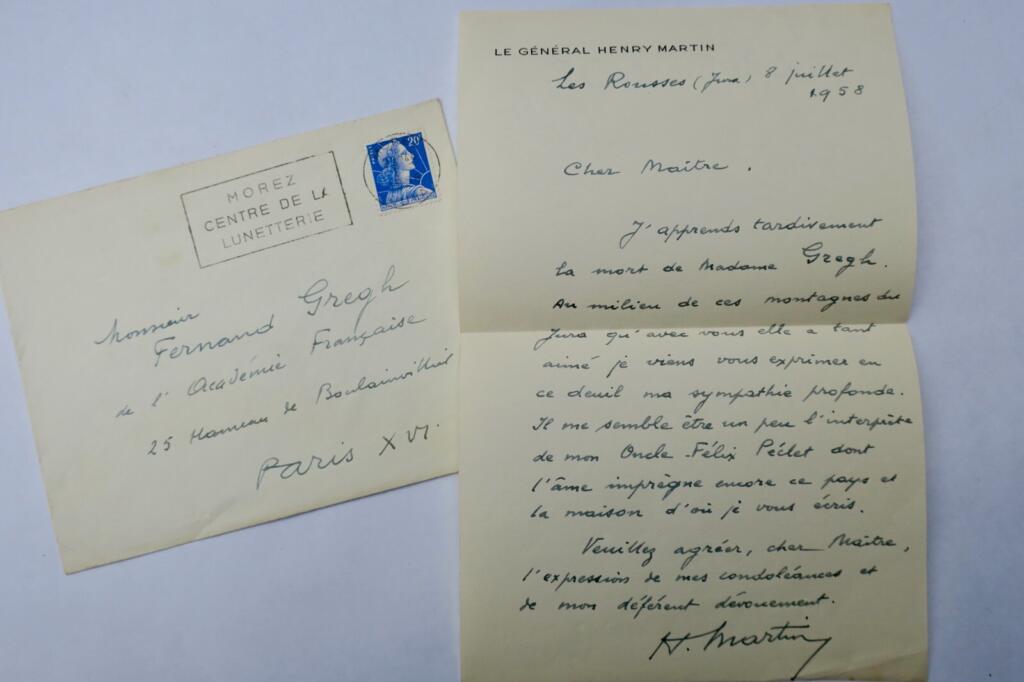 MOREZ
CENTRE DE LA
LUNETTERIE
20F
Monsieur
Fernand Gregh
de l'Académie Française
25 Hameau de Boulainvilliers
Paris XVI.
LE GÉNÉRAL HENRY MARTIN
Les Rousses (Jura) 8 juillet
1958
Cher Maître.
J'apprends tardivement
la mort de Madame Gregh.
Au milieu de ces montagnes du
Jura qu'avec vous elle a tant
aimé je viens vous exprimer en
ce deuil ma sympathie profonde.
Il me semble être un peu l'interprète
de mon Oncle Félix Péclet dont
l'âme imprègne encore ce pays et
la maison d'où je vous écris.
Veuillez agréer, cher Maître,
l'expression de mes condoléances et
de mon déférent dévouement.
H. Martin